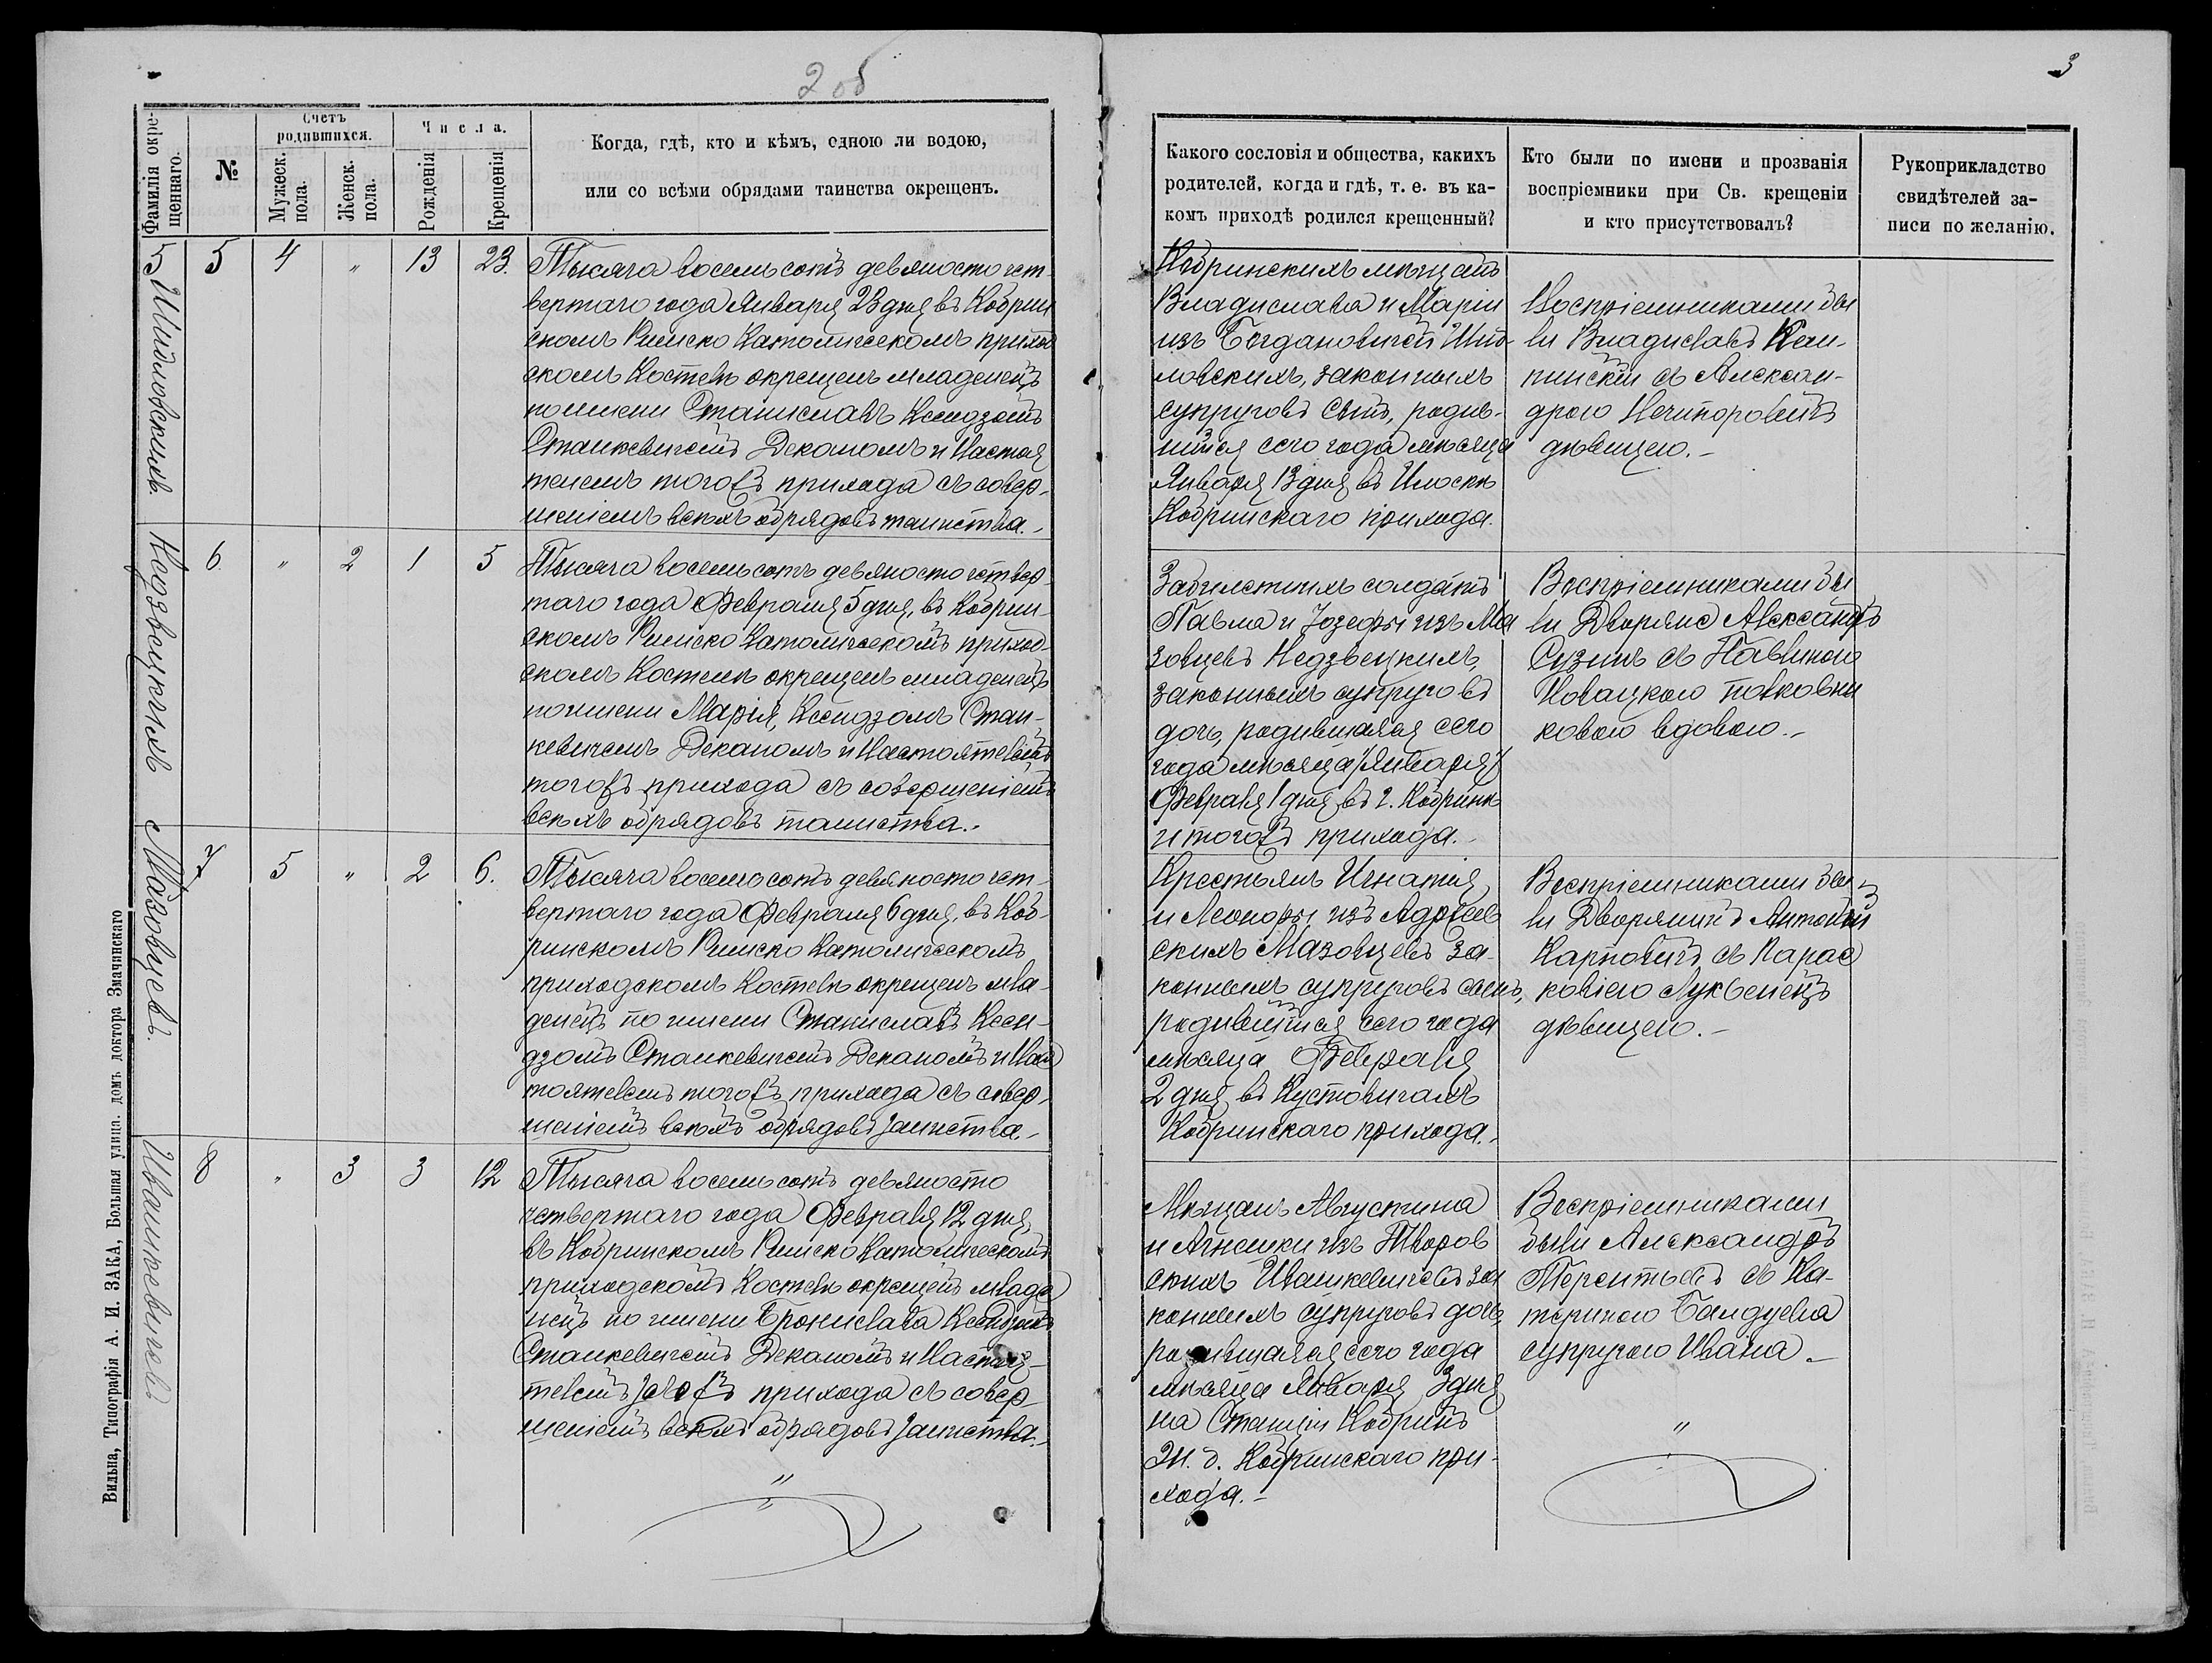 2 об
3
Фамилія окре-
щеннаго.
№
Счетъ
родившихся.
Мужеск.
пола.
Женск.
пола.
Числа.
Рожденія
Крещенія
Когда, гдѣ, кто и кѣмъ, одною ли водою,
или со всѣми обрядами таинства окрещенъ.
Какого сословія и общества, какихъ
родителей, когда и гдѣ, т. е. въ ка-
комъ приходѣ родился крещенный?
Кто были по имени и прозванія
воспріемники при Св. крещеніи
и кто присутствовалъ?
Рукоприкладство
свидѣтелей за-
писи по желанію.
5 Шидловскихъ
5 4 " 13 23.
Тысяча восемьсотъ девяносто чет-
вертаго года Января 23 дня въ Кобрин
скомъ Римско Католическомъ приход
скомъ Костелѣ окрещенъ младенецъ
по имени Станиславъ Ксендзомъ
Станкевичемъ Деканомъ и Настоя
телемъ тогожъ прихода съ совер-
шеніемъ всѣхъ обрядовъ таинства.-
Кобринскихъ мѣщанъ
Владислава и Маріи
изъ Богдановичей Шид-
ловскихъ, законныхъ
супруговъ сынъ, родив-
шійся сего года мѣсяца
Января 13 дня въ Илоскѣ
Кобринскаго прихода.
Воспріемниками бы
ли Владиславъ Кем-
пинскій съ Алексан-
дрою Нечипоровичъ
дѣвицею.-
Недзвѣцкихъ
6. " 2 1 5
Тысяча восемьсотъ девяносто четвер-
таго года Февраля 5 дня, въ Кобрин-
скомъ Римско Католическомъ приход-
скомъ Костелѣ окрещенъ младенецъ
по имени Марія, Ксендзомъ Стан-
кевичемъ Деканомъ и Настоятелемъ
тогожъ прихода съ совершеніемъ
всѣхъ обрядовъ таинства.-
Забилетныхъ солдатъ
Павла и Іозефы изъ Ма
зовцевъ Недзвецкихъ,
законныхъ супруговъ
дочь, родившаяся сего
года мѣсяца /Января/
Февраля 1 дня, въ г. Кобринѣ
и тогожъ прихода.-
Воспріемниками бы
ли Дворяне Александръ
Сузинъ съ Павлиною
Новацкою полковни
ковою вдовою.-
Мазовцевъ.
7 5 " 2 6.
Тысяча восемьсотъ девяносто чет-
вертаго года Февраля 6 дня, въ Коб-
ринскомъ Римско Католическомъ
приходскомъ Костелѣ окрещенъ мла-
денецъ по имени Станиславъ Ксен-
дзомъ Станкевичемъ Деканомъ и Нас
тоятелемъ тогожъ прихода съ совер-
шеніемъ всѣхъ обрядовъ таинства.-
Крестьянъ Игнатія
и Леоноры изъ
скихъ Мазовцевъ за-
конныхъ супруговъ сынъ,
родившійся сего года
мѣсяца Февраля
2 дня, въ Кустовичахъ
Кобринскаго прихода.-
Воспріемниками бы-
ли Дворянинъ Антоній
Карповичъ съ Парас
ковіею
дѣвицею.-
Ивашкевичевъ
8 " 3 3 12
Тысяча восемьсотъ девяносто
четвертаго года Февраля 12 дня,
въ Кобринскомъ Римско Католическомъ
приходскомъ Костелѣ окрещенъ младе
нецъ по имени Бронислава Ксендзомъ
Станкевичемъ Деканомъ и Настоя-
телемъ тогожъ прихода съ совер-
шеніемъ всѣхъ обрядовъ таинства.-
"
Мѣщанъ Августина
и Агнешки изъ Творов
скихъ Ивашкевичевъ за
конныхъ супруговъ дочь,
родившаяся сего года
мѣсяца Января 3 дня
на Станціи Кобринъ
Ж. д. Кобринскаго при-
хода.-
Воспріемниками
были Александръ
Терентьевъ съ Ка-
териною Бандуева
супругою Ивана.-
"
Вильна, Типографія А. И. ЗАКА, Большая улица. домъ доктора Змачинскаго